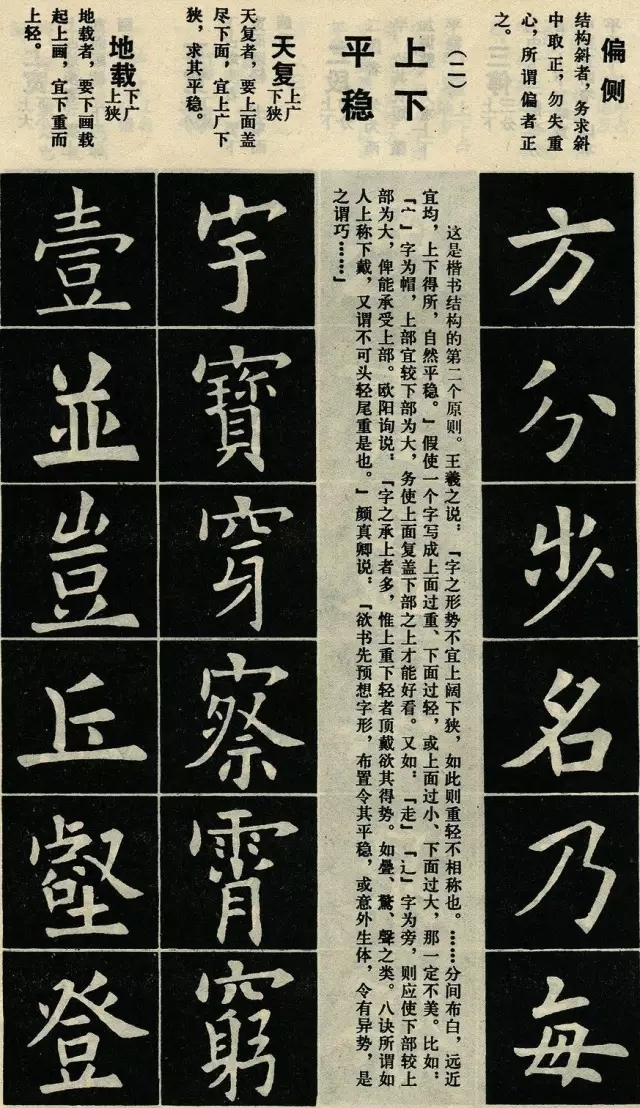 偏侧
结构斜者，务求斜
中取正，勿失重
心，所谓偏者正
之。
方
分
步
名
乃
每
（二）
上下
平稳
这是楷书结构的第二个原则。王羲之说：「字之形势不宜上阔下狭，如此则重轻不相称也。……分间布白，远近
宜均，上下得所，自然平稳。」假使一个字写成上面过重、下面过轻，或上面过小、下面过大，那一定不美。比如：
「宀」字为帽，上部宜较下部为大，务使上面复盖下部之上才能好看。又如：「走」「辶」字为旁，则应使下部较上
部为大，俾能承受上部。欧阳询说：「字之承上者多，惟上重下轻者顶戴欲其得势。如疊、驚、聲之类。八诀所谓如
人上称下戴，又谓不可头轻尾重是也。」颜真卿说：「欲书先预想字形，布置令其平稳，或意外生体，令有异势，是
之谓巧……」
天复 上广
下狭
天复者，要上面盖
尽下面，宜上广下
狭，求其平稳。
宇
寶
穿
察
霄
窮
地载 下广
上狭
地载者，要下画载
起上画，宜下重而
上轻。
壹
並
豈
丘
壑
登